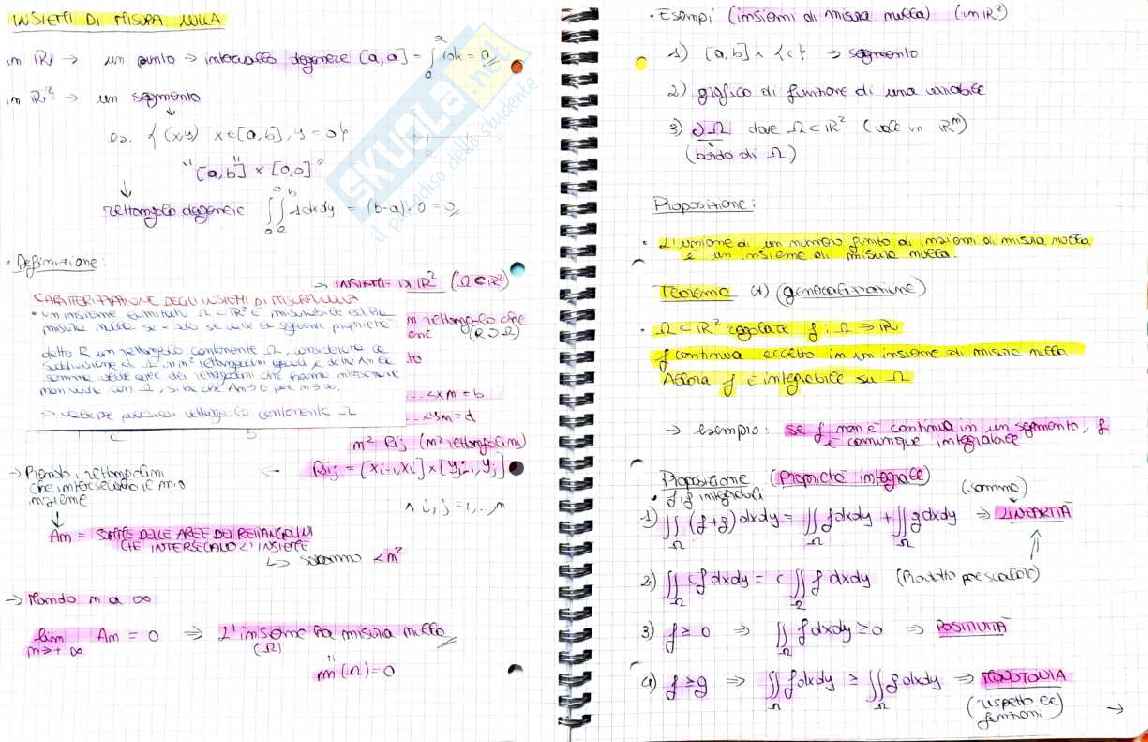 INSIEMI DI MISURA NULLA
in ℝ → un punto → intervallo degenere [a,a] = ∫ 1dx = 0
in ℝ² → un segmento
es. {(x,y) x∈[a,b], y=0}
"[a,b] × [0,0]"
rettangolo degenere ∫∫ 1dxdy = (b-a)·0 = 0
SKUOLA.net
il paradiso dello studente
• Definizione:
→ INSIEME DI ℝ² (Ω⊂ℝ²)
CARATTERIZZAZIONE DEGLI INSIEMI DI MISURA NULLA
• un insieme limitato Ω⊂ℝ² è misurabile ed ha
misura nulla se e solo se vale la seguente proprietà
detto R un rettangolo contenente Ω,
suddivisione di Ω in n² rettangolini uguali e detta An la
somma delle aree dei rettangolini che hanno intersezione
non vuota con Ω, si ha che An→0 per n→∞.
rettangolo contenente Ω
n rettangolo che
(R⊃Ω)
to
.. <xn = b
.. <yn = d
n² Rij (n² rettangolini)
→ Prendo i rettangolini
che intersecano il mio
insieme
← Rij = [xi-1, xi] × [yj-1, yj]
∧ i,j = 1,..,n
An = SOMMA DELLE AREE DEI RETTANGOLINI
CHE INTERSECANO L'INSIEME
↳ saranno < n²
→ Mando n a ∞
lim An = 0 ⇒ L'insieme ha misura nulla
n→+∞ (Ω)
m(Ω)=0
• Esempi (insiemi di misura nulla) (in ℝ²)
1) [a,b] × {c} → segmento
2) grafico di funzione di una variabile
3) ∂Ω dove Ω⊂ℝ² (vale in ℝⁿ)
(bordo di Ω)
Proposizione:
• L'unione di un numero finito di insiemi di misura nulla
è un insieme di misura nulla.
Teorema (generalizzazione)
• Ω⊂ℝ² regolare f: Ω → ℝ
f continua eccetto in un insieme di misura nulla
Allora f è integrabile su Ω
→ esempio: se f non è continua in un segmento, f
è comunque integrabile
Proposizione (Proprietà integrale)
• f,g integrabili (somma)
1) ∫∫Ω (f+g) dxdy = ∫∫Ω f dxdy + ∫∫Ω g dxdy ⇒ LINEARITÀ
2) ∫∫Ω cf dxdy = c ∫∫Ω f dxdy (Prodotto per scalare)
3) f ≥ 0 ⇒ ∫∫Ω f dxdy ≥ 0 ⇒ POSITIVITÀ
4) f ≥ g ⇒ ∫∫Ω f dxdy ≥ ∫∫Ω g dxdy ⇒ MONOTONIA
(rispetto alle
funzioni) →